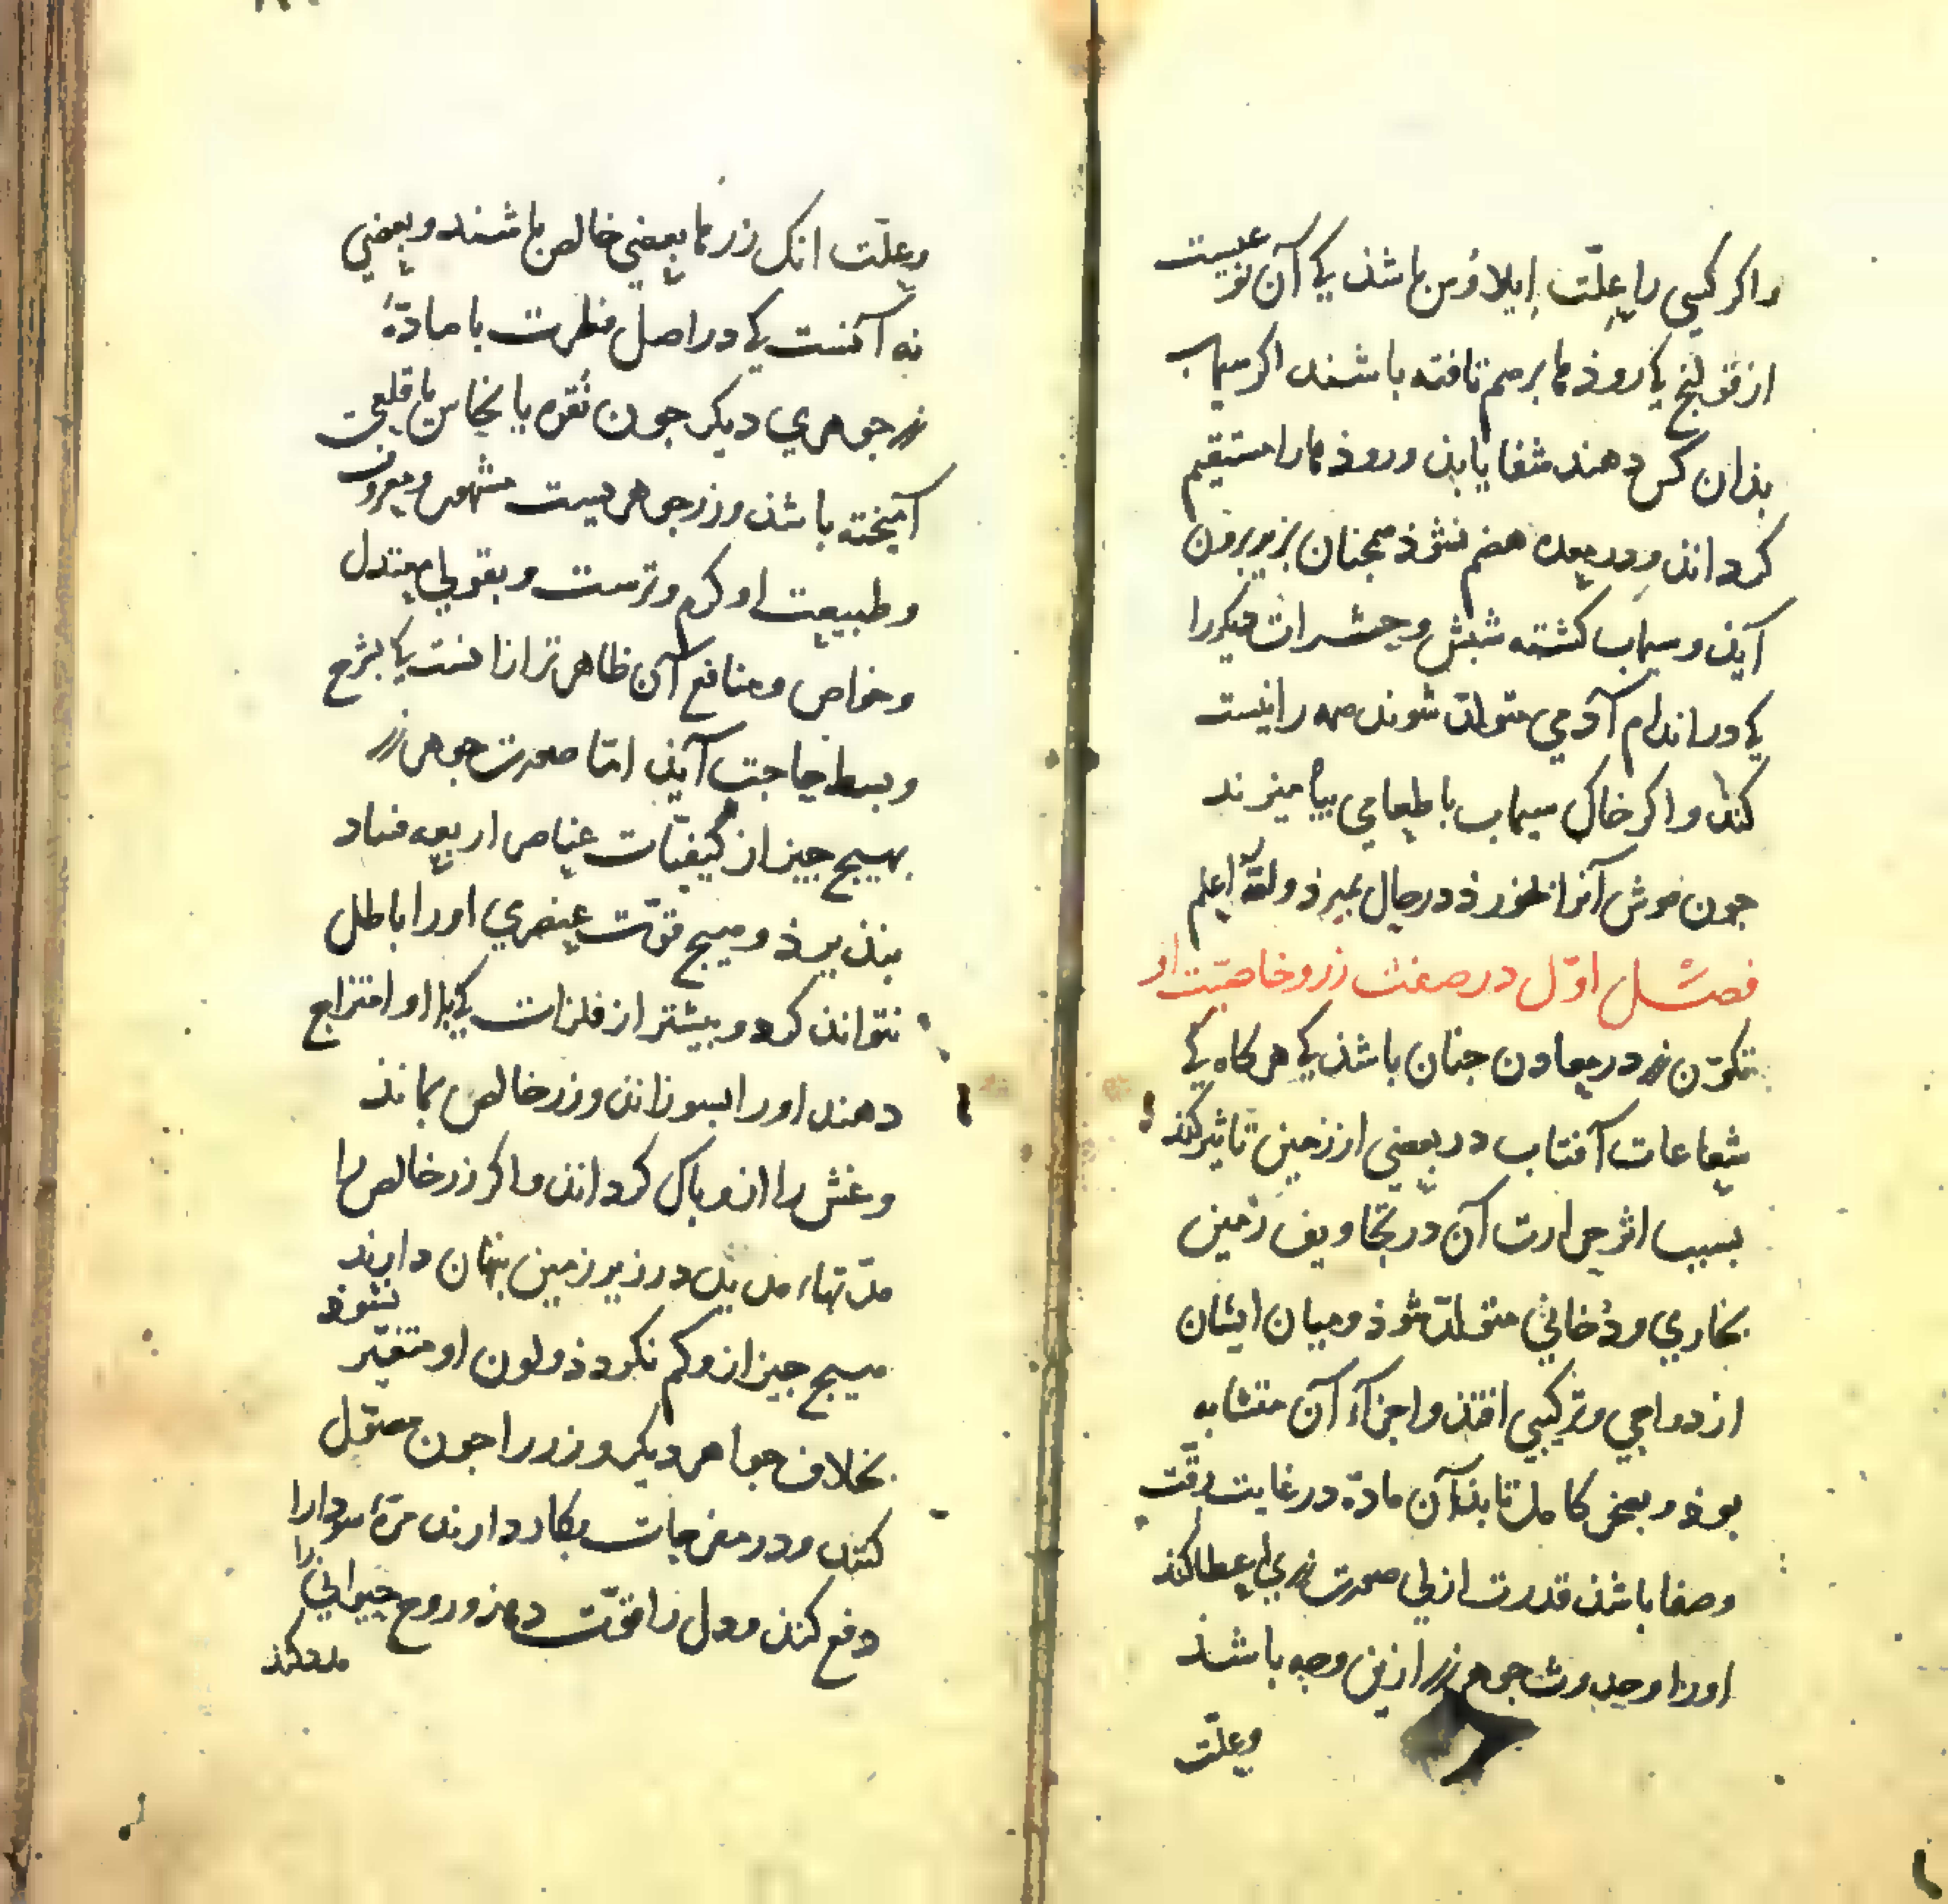 واکر کسی را علّت اِیلاؤس باشذ کی آن نوعیست
از قولنج کی روذها برهم تافته باشند اکر سیماب
بذان کس دهند شفا یابذ و روذها را مستقیم
کرداند و در معده هضم نشوذ همجنان بزیر برون
آیذ و سیماب کشته شبش و حشرات دیکر را
کی در اندام آدمی متولّد شوند همه را نیست
کند و اکر خاک سیماب با طعامی بیامیزند
جون موش آنرا بخورذ در حال بمیرذ والله اعلم
فصل اوّل در صفت زر و خاصیّت او
تکوّن زر در معادن جنان باشذ کی هر کاه کی
شعاعات آفتاب در بعضی از زمین تاثیر کند
بسبب اثر حرارت آن در تجاویف زمین
بخاری و دُخانی متولّد شوذ و میان ایشان
ازدواجی و ترکیبی افتذ و اجزآء آن متشابه
بوذ و بعض کامل تابذ آن مادّه در غایت رقّت
و صفا باشذ قدرت ازلی صورت زری اعطا کند
اورا و حدوث جوهر زر ازین وجه باشذ
وعلّت
وعلّت انک زرها بعضی خالص باشند و بعضی
نه آنست کی در اصل فطرت با مادّهٔ
زر جوهری دیکر جون نُقره یا نحاس یا قلعی
آمیخته باشذ و زر جوهریست مشهور و معروف
و طبیعت او کرم و ترست و بقولی معتدل
و خواص و منافع آن ظاهرتر ازانست کی بشرح
و بسط حاجت آیذ امّا صورت جوهر زر
بهیج جیز از کیفیّات عناصر اربعه فساد
نبذیرذ و هیج قوّت عنصری اورا باطل
نتواند کرد و بیشتر از فلزات کی با او امتزاج
دهند اورا بسوزاند و زر خالص بماند
و غش را ازو باک کرداند و اکر زر خالص را
مدّتهاء مدید در زیر زمین بنهان دارند
هیج جیز ازو کم نکردذ و لون او متغیّر نشوذ
بخلاف جواهر دیکر و زر را جون محلول
کنند و در مفرحات بکار دارند مرّهٔ سودا را
دفع کند و دل را قوّت دهد و روح حیوانی را
مدد کند